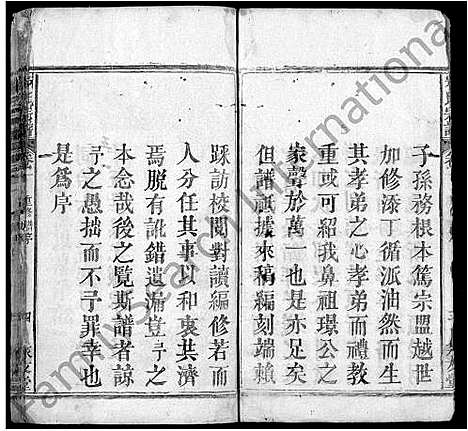 子孫務根本篤宗盟越世
加修添丁循派油然而生
其孝弟之心孝弟而禮教
重或可紹我鼻祖璟公之
家聲於萬一也是亦足矣
但譜牒據來稿編刻端賴
踩訪校閱對讀編修若而
人分任其事以和衷共濟
焉脫有訛錯遺漏豈予之
本念哉後之覽斯譜者諒
予之愚拙而不予罪幸也
是爲序
四
FamilySearch International